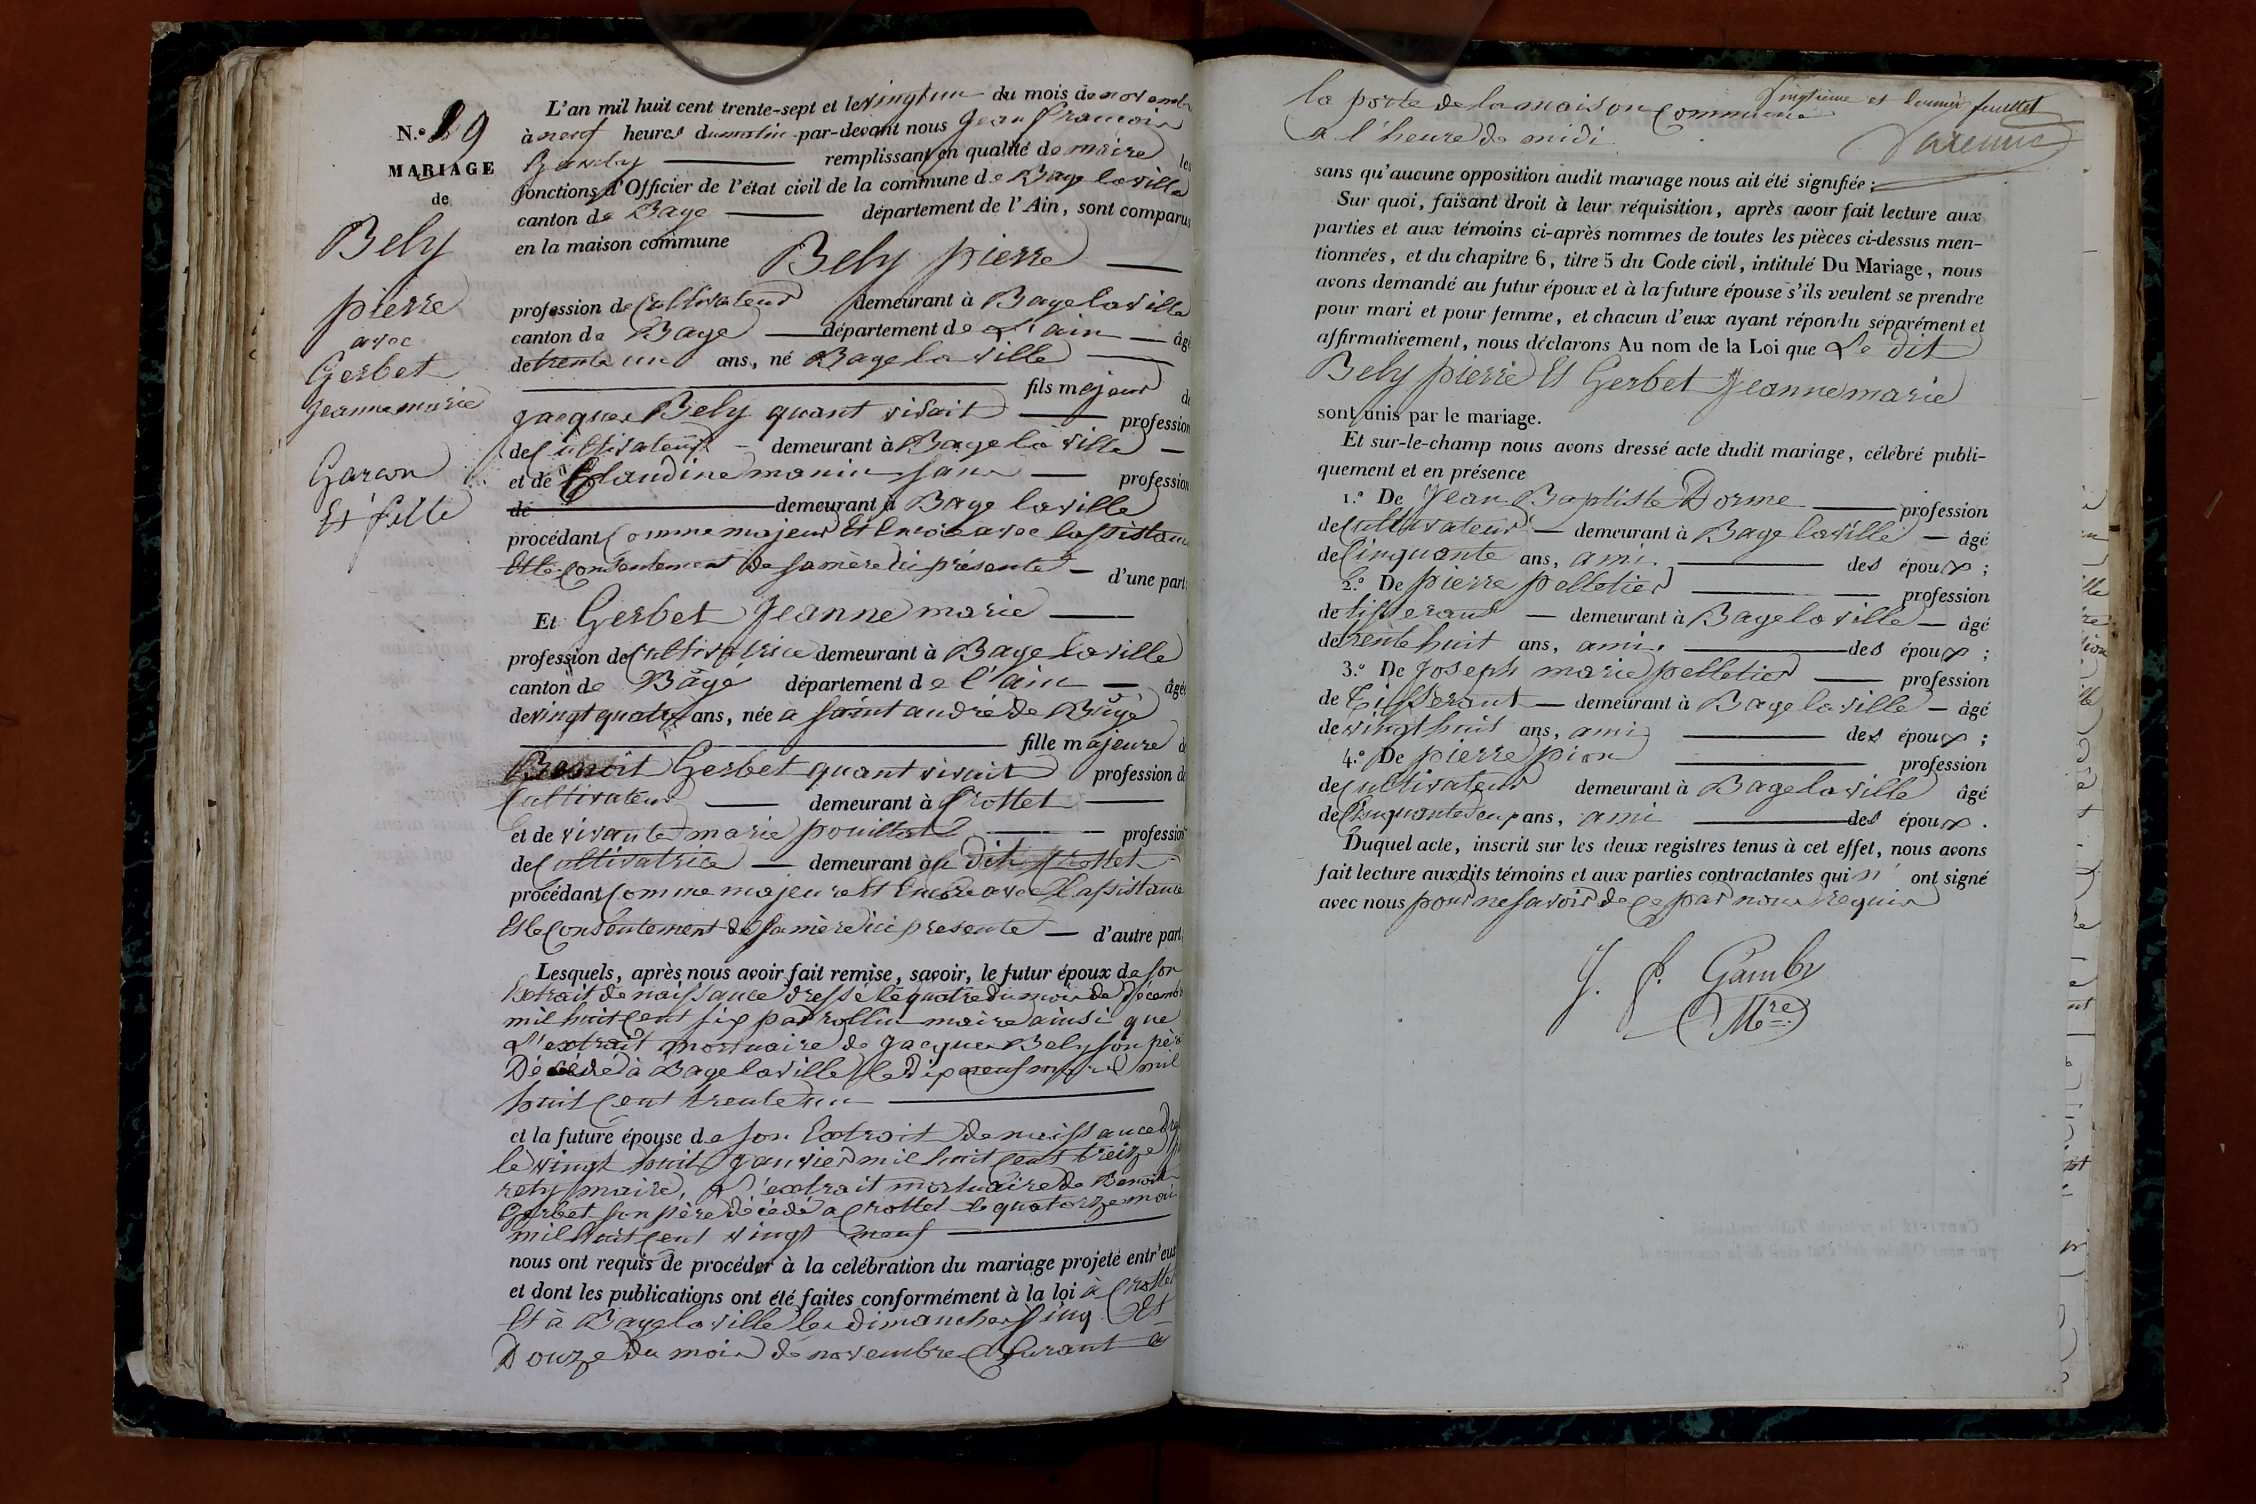 N.° 29
MARIAGE
de
Bely
pierre
avec
Gerbet
jeanne marie
Garcon
Et fille
L'an mil huit cent trente-sept et le vingt un du mois de novembre
à neuf heures du matin par-devant nous jean francois
Gamby remplissant en qualité de maire les
fonctions d'Officier de l'état civil de la commune de Bage la ville
canton de Bage département de l'Ain, sont comparus
en la maison commune
Bely pierre
profession de Cultivateur demeurant à Bage la ville
canton de Bage département de L'ain âgé
de trente un ans, né Bage la ville
fils majeur de
jacques Bely quant vivait profession
de Cultivateur demeurant à Bage la ville
et de Claudine manin sans profession
de demeurant à Bage la ville
procédant Comme majeur Et Encore avec lassistance
Et le Consentement de sa mère ici présente d'une part;
Et Gerbet Jeanne marie
profession de Cultivatrice demeurant à Bage la ville
canton de Bâgé département de l'ain âgée
de vingt quatre ans, née a saint andré de Bâgé
fille majeure de
Benoit Gerbet quant vivait profession de
Cultivateur demeurant à Crottet
et de vivante marie pouillat profession
de Cultivatrice demeurant à u dit Crottet
procédant Comme majeure Et Encore avec L'assistance
Et le Consentement de sa mère ici presente d'autre part
Lesquels, après nous avoir fait remise, savoir, le futur époux de son
Extrait de naissance dressé le quatre du mois de Décembre
mil huit Cent six par rollin maire ainsi que
L'extrait mortuaire de jacques Bely son père
Décédé à Bage la ville le Dix neuf mars mil
huit Cent trente un
et la future épouse de son Extrait de naissance
le vingt huit janvier mil huit Cent treize
rety maire, L'extrait mortuaire de Benoit
Gerbet son père décédé a Crottet le quatorze mai
mil huit Cent vingt neuf
nous ont requis de procéder à la celébration du mariage projeté entr'eux
et dont les publications ont été faites conformément à la loi à Crottet
Et à Bage la ville les dimanches Cinq Et
Douze du mois de novembre Courant a
Vingtieme et dernier feuillet
Darenne
la porte de la maison Commune
a l'heure de midi
sans qu'aucune opposition audit mariage nous ait été signifiée:
Sur quoi, faisant droit à leur réquisition, après avoir fait lecture aux
parties et aux témoins ci-après nommes de toutes les pièces ci-dessus men-
tionnées, et du chapitre 6, titre 5 du Code civil, intitulé Du Mariage, nous
avons demandé au futur époux et à la future épouse s'ils veulent se prendre
pour mari et pour femme, et chacun d'eux ayant répondu séparément et
affirmativement, nous déclarons Au nom de la Loi que Le dit
Bely pierre Et Gerbet jeanne marie
sont unis par le mariage.
Et sur-le-champ nous avons dressé acte dudit mariage, célébré publi-
quement et en présence
1.° De Jean Baptiste Dorme profession
de Cultivateur demeurant à Bage la ville âgé
de Cinquante ans, ami des époux;
2.° De pierre pelletier profession
de tisserant demeurant à Bage la ville âgé
de trente huit ans, ami des époux;
3.° De Joseph marie pelletier profession
de Tisserant demeurant à Bage la ville âgé
de vingt huit ans, ami des époux;
4.° De pierre pion profession
de Cultivateur demeurant à Bage la ville âgé
de Cinquante deux ans, ami des époux.
Duquel acte, inscrit sur les deux registres tenus à cet effet, nous avons
fait lecture auxdits témoins et aux parties contractantes qui n' ont signé
avec nous pour ne savoir de ce par nous requis
J. f. Gamby
Mre